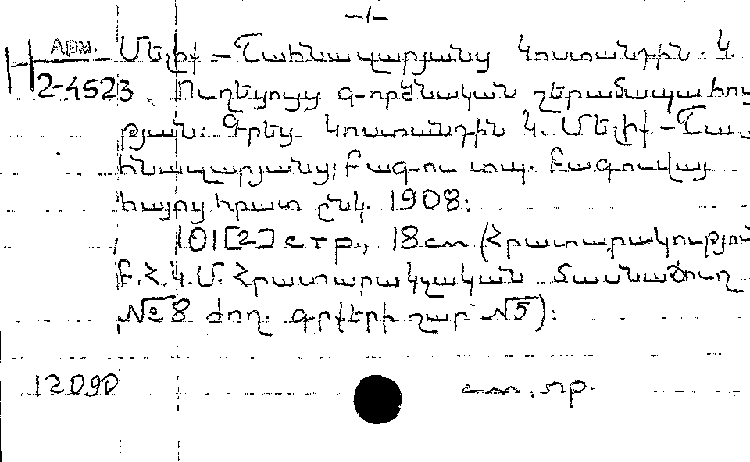 -1-
Арм. Մելիք-Շահնազարյանց Կոստանդին. Կ
2-4523 Ուղեցույց գործնական շերամապահու
թյան: Գրեց Կոստանդին Կ. Մելիք-Շա-
հնազարյանց: Բագու տպ. Բագուվայ
հայոց հրատ ընկ. 1908:
101[2] стр., 18см (Հրատարակություն
Բ.Հ.Կ.Մ. Հրատարակչական մասնաճուղ
№ 8 ժող. գրքերի շար №5):
12090 ст. пр.